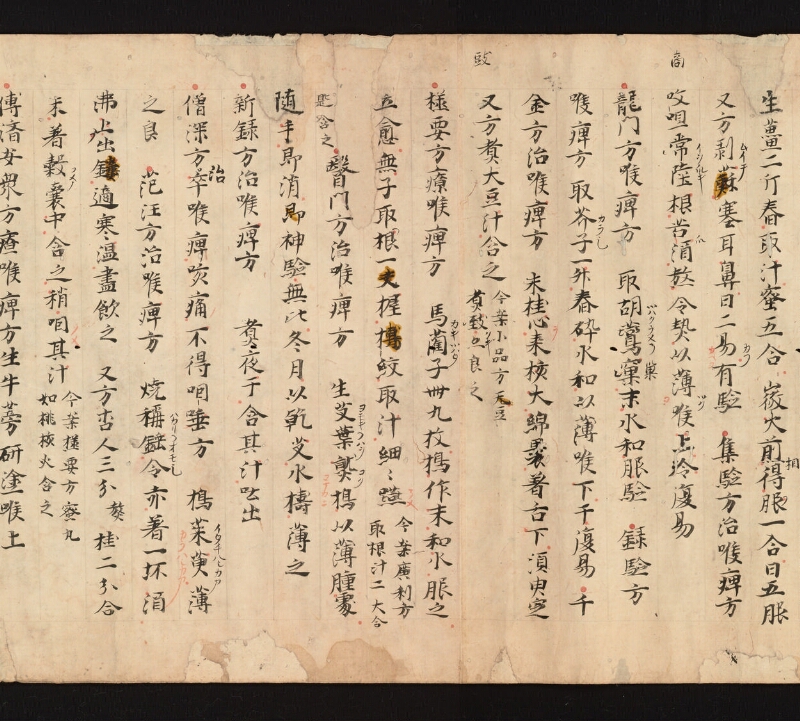 生薑二斤舂取汁蜜五合 微火煎相得服一合日五服
又方剥蒜塞耳鼻日二易有驗 集驗方治喉痺方
㕮咀常陸根苦酒熬令熱以薄喉上冷復易
商
龍門方喉痺方 取胡鷰窠末水和服驗 録驗方
喉痺方 取芥子一升舂碎水和以薄喉下干復易 千
金方治喉痺方 末桂心棗核大綿裹著舌下須臾定
又方煮大豆汁含之 今案小品方无豆
煮豉亦良之
豉
様要方療喉痺方 馬藺子卌九枚擣作末和水服之
立愈無子取根一大握擣絞取汁細々嚥 今案廣利方
取根汁二大合
匙含之 醫門方治喉痺方 生艾葉熟擣以薄腫處
隨手即消神驗無比冬月以乾艾水擣薄之
新録方治喉痺方 煮夜干含其汁吐出
僧深方治卒喉痺咳痛不得咽唾方 擣茱萸薄
之良 范汪方治喉痺方 燒稱錘令赤著一抔酒
沸止出錘適寒温盡飲之 又方杏人三分熬 桂二分合
末著縠嚢中含之稍咽其汁 今案様要方蜜丸
如桃核大含之
博濟安衆方療喉痺方生牛蒡研塗喉上